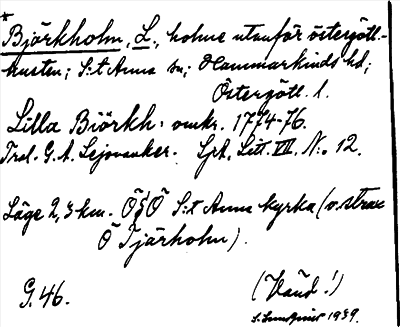 * Björkholm, L., holme utanför östergötl.-
kusten; S:t Anna sn; Hammarkinds hd;
Östergötl. l.
Lilla Biörkh: omkr. 1774-76.
G. A. Lejonanker. SjK, Litt. VII, N:o 12.
Läge 2,3 km. ÖSÖ S:t Anna kyrka (o. strax
Ö Tjärholm).
G. 46. (Vänd!)
1939.